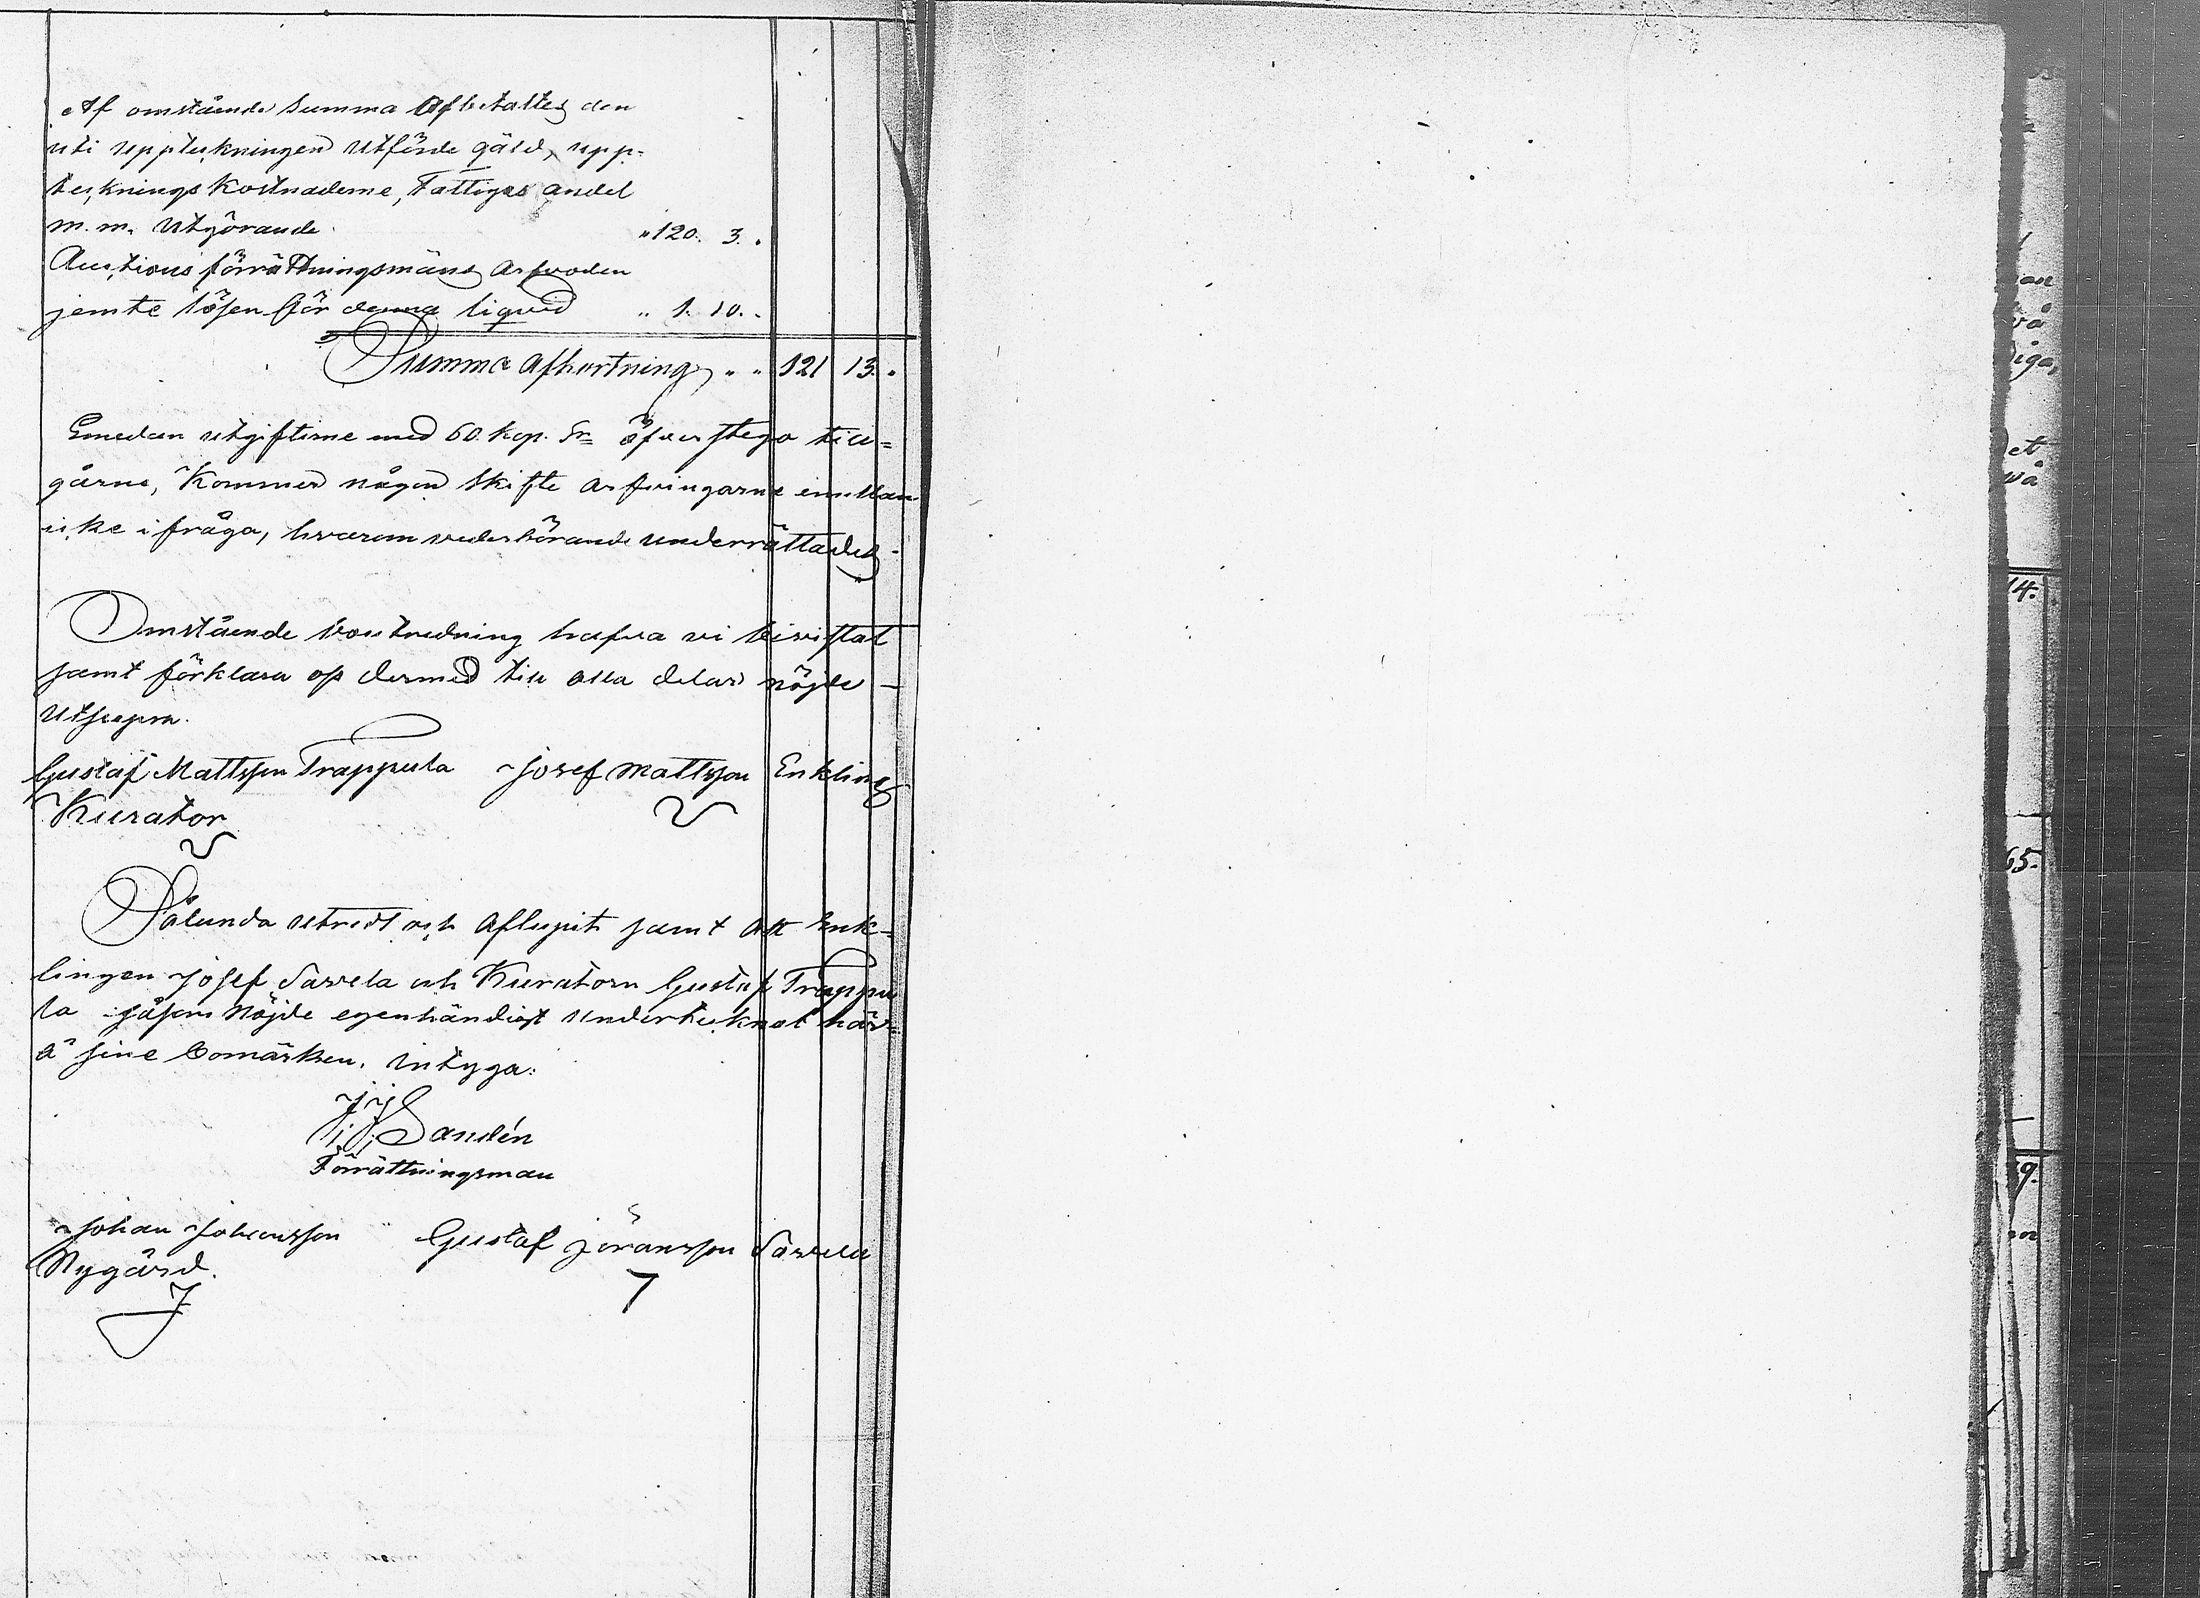 Af omstående summa Afbetaltes den
uti uppteckningen utförde gäld, upp-
tecknings kostnaderne, Fattiges andel
m. m. utgörande " 120. 3. "
Auctions förrättningsmäns arfvoden
jemte lösen för denna liqvid " 1. 10. "
Summa afkortning " " 121 13. "
Emedan utgifterne med 60. kop. Sr öfverstego till-
gårne, kommer någon skifte arfvingarne emellan
icke i fråga, hvarom vederbörande underrättades.
Omstående boutredning hafva vi bivistat
samt förklara os dermed till alla delar nöjde
utsegra.
Gustaf Mattsson Trappula Josef Mattsson Enkling
Kurator
Sålunda utredt och aflupit samt att Enk-
lingen Josef Sarvela och Kuratorn Gustaf Trappu
la såsom nöjde egenhändigt undertecknat här-
å sine bomärken. intyga:
J: J: Sandén
Förrättningsman
Johan Johansson Gustaf Jöransson Sarvela
Nygård.
an
vå
diga,
et
wå
14.
65.
9.